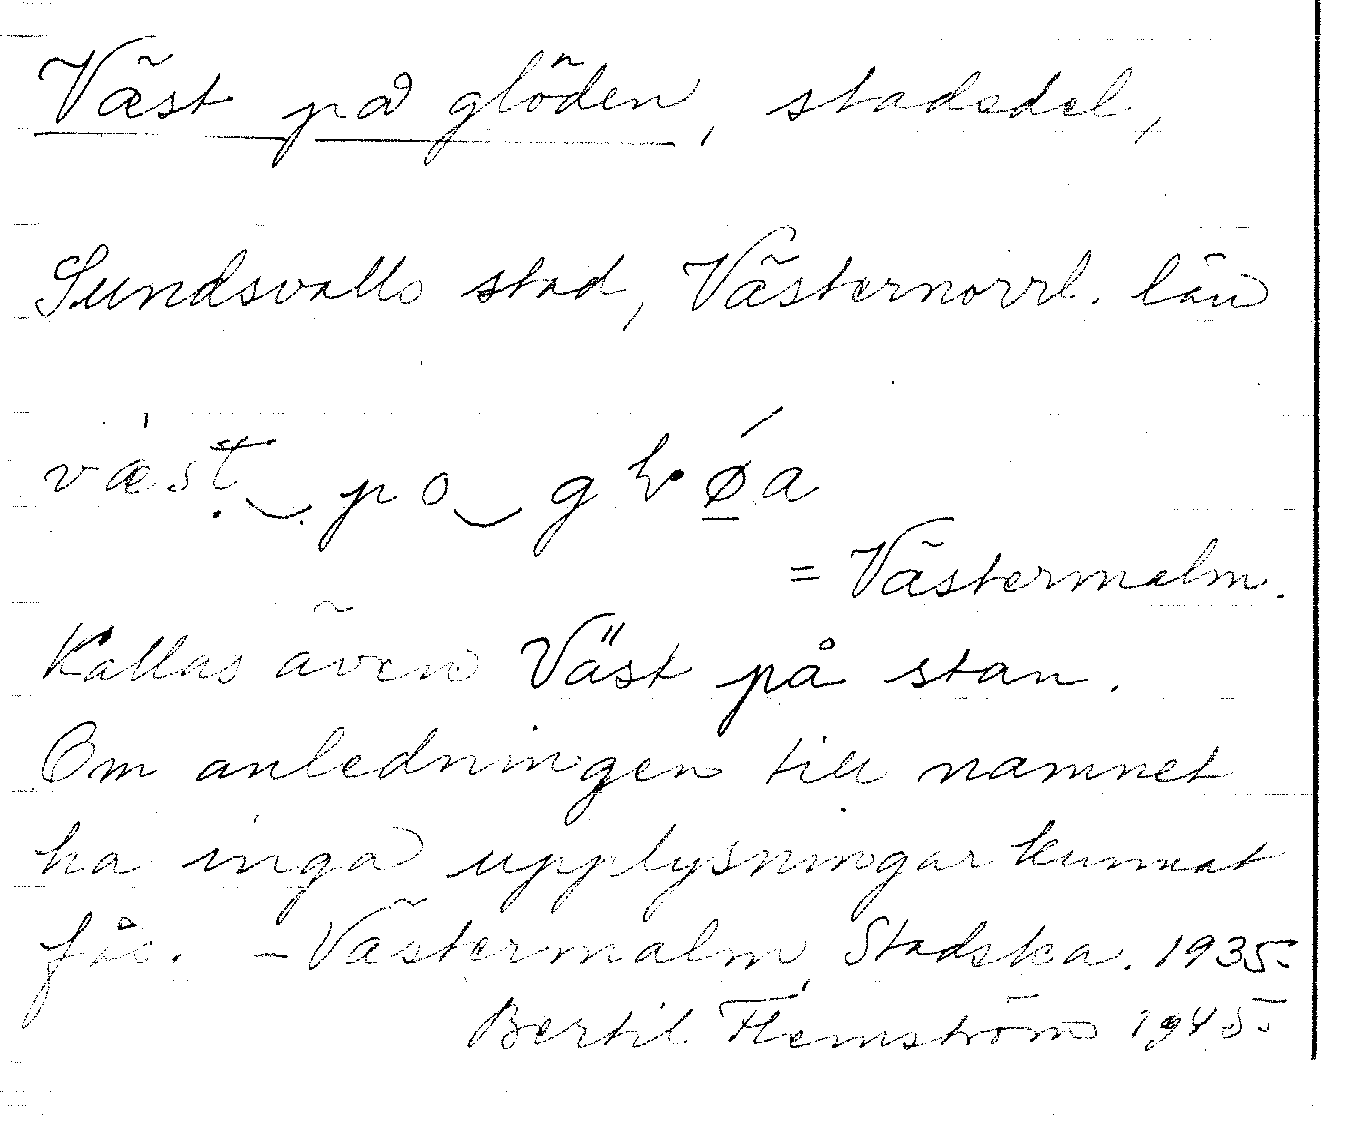 Väst på glöden, stadsdel,
Sundsvalls stad, Västernorrl. län
væst po gløa
= Västermalm.
Kallas även Väst på stan.
Om anledningen till namnet
ha inga upplysningar kunnat
fås. – Västermalm, Stadska. 1935.
Bertil Flemström 1945.